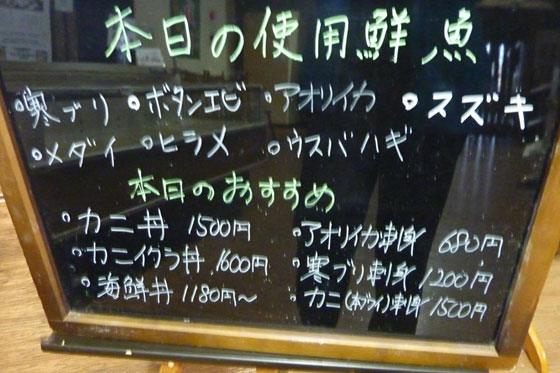 本日の使用鮮魚
・寒ブリ ・ボタンエビ ・アオリイカ ・スズキ
・メダイ ・ヒラメ ・ウスバハギ
本日のおすすめ
・カニ丼 1500円
・カニイクラ丼 1600円
・海鮮丼 1180円～
・アオリイカ刺身 680円
・寒ブリ刺身 1200円
・カニ(本ズワイ)刺身 1500円